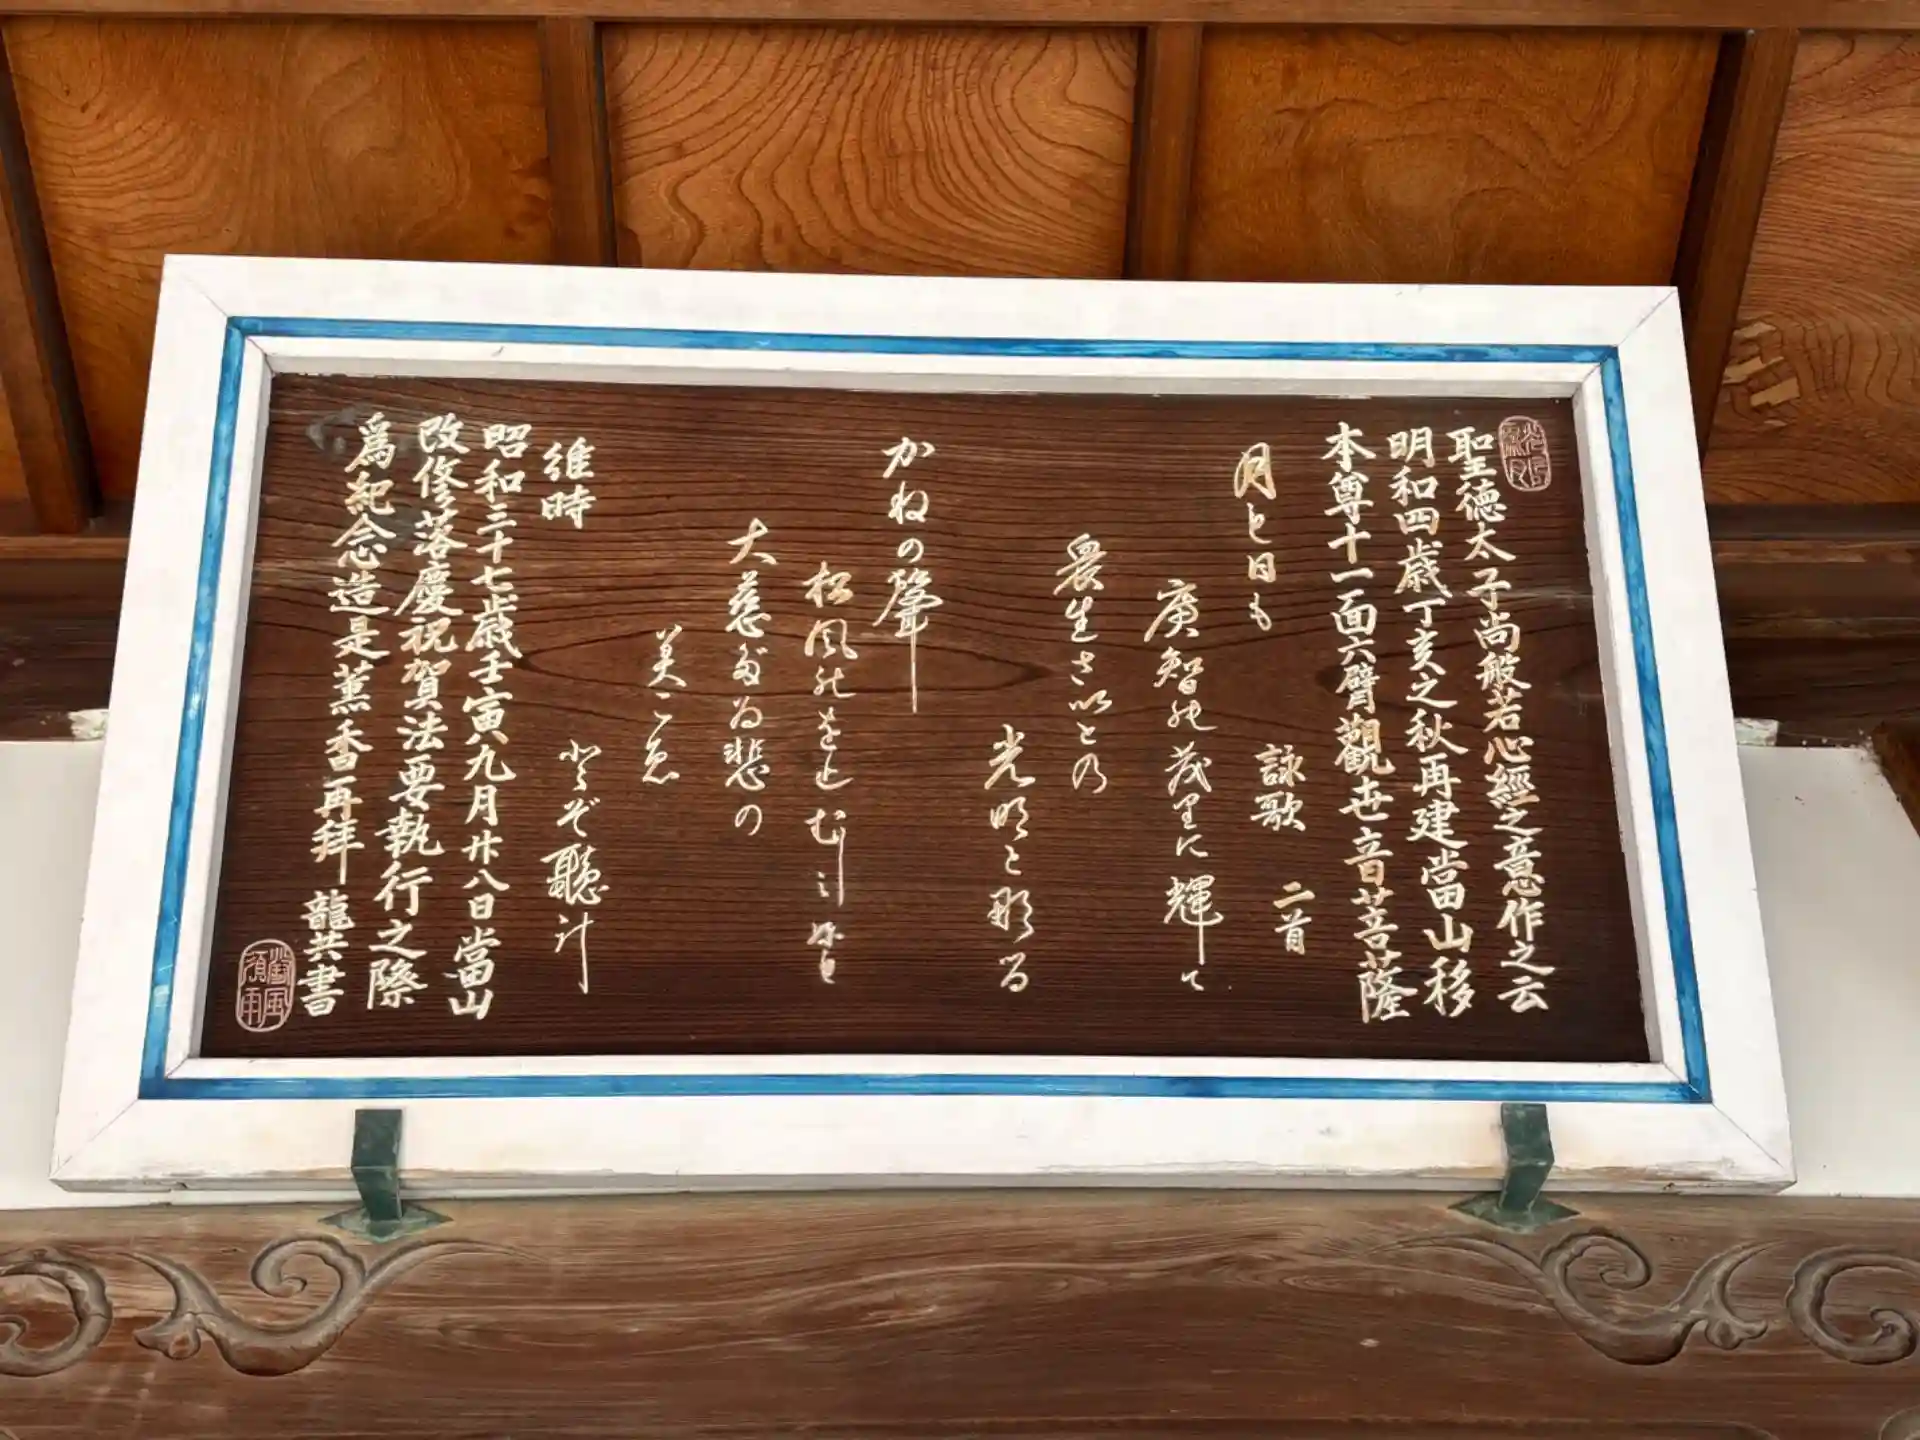 聖徳太子尚般若心經之意作之云
明和四歳丁亥之秋再建當山移
本尊十一面六臂觀世音菩薩
詠歌 二首
月も日も
庚智能茂里に輝て
衆生さいとの
光明と那る
かねの聲
松風能を止むる
大慈だい悲の
聴計
維時
昭和三十七歳壬寅九月廿八日當山
改修落慶祝賀法要執行之際
爲紀念造是薫香再拜 龍共書